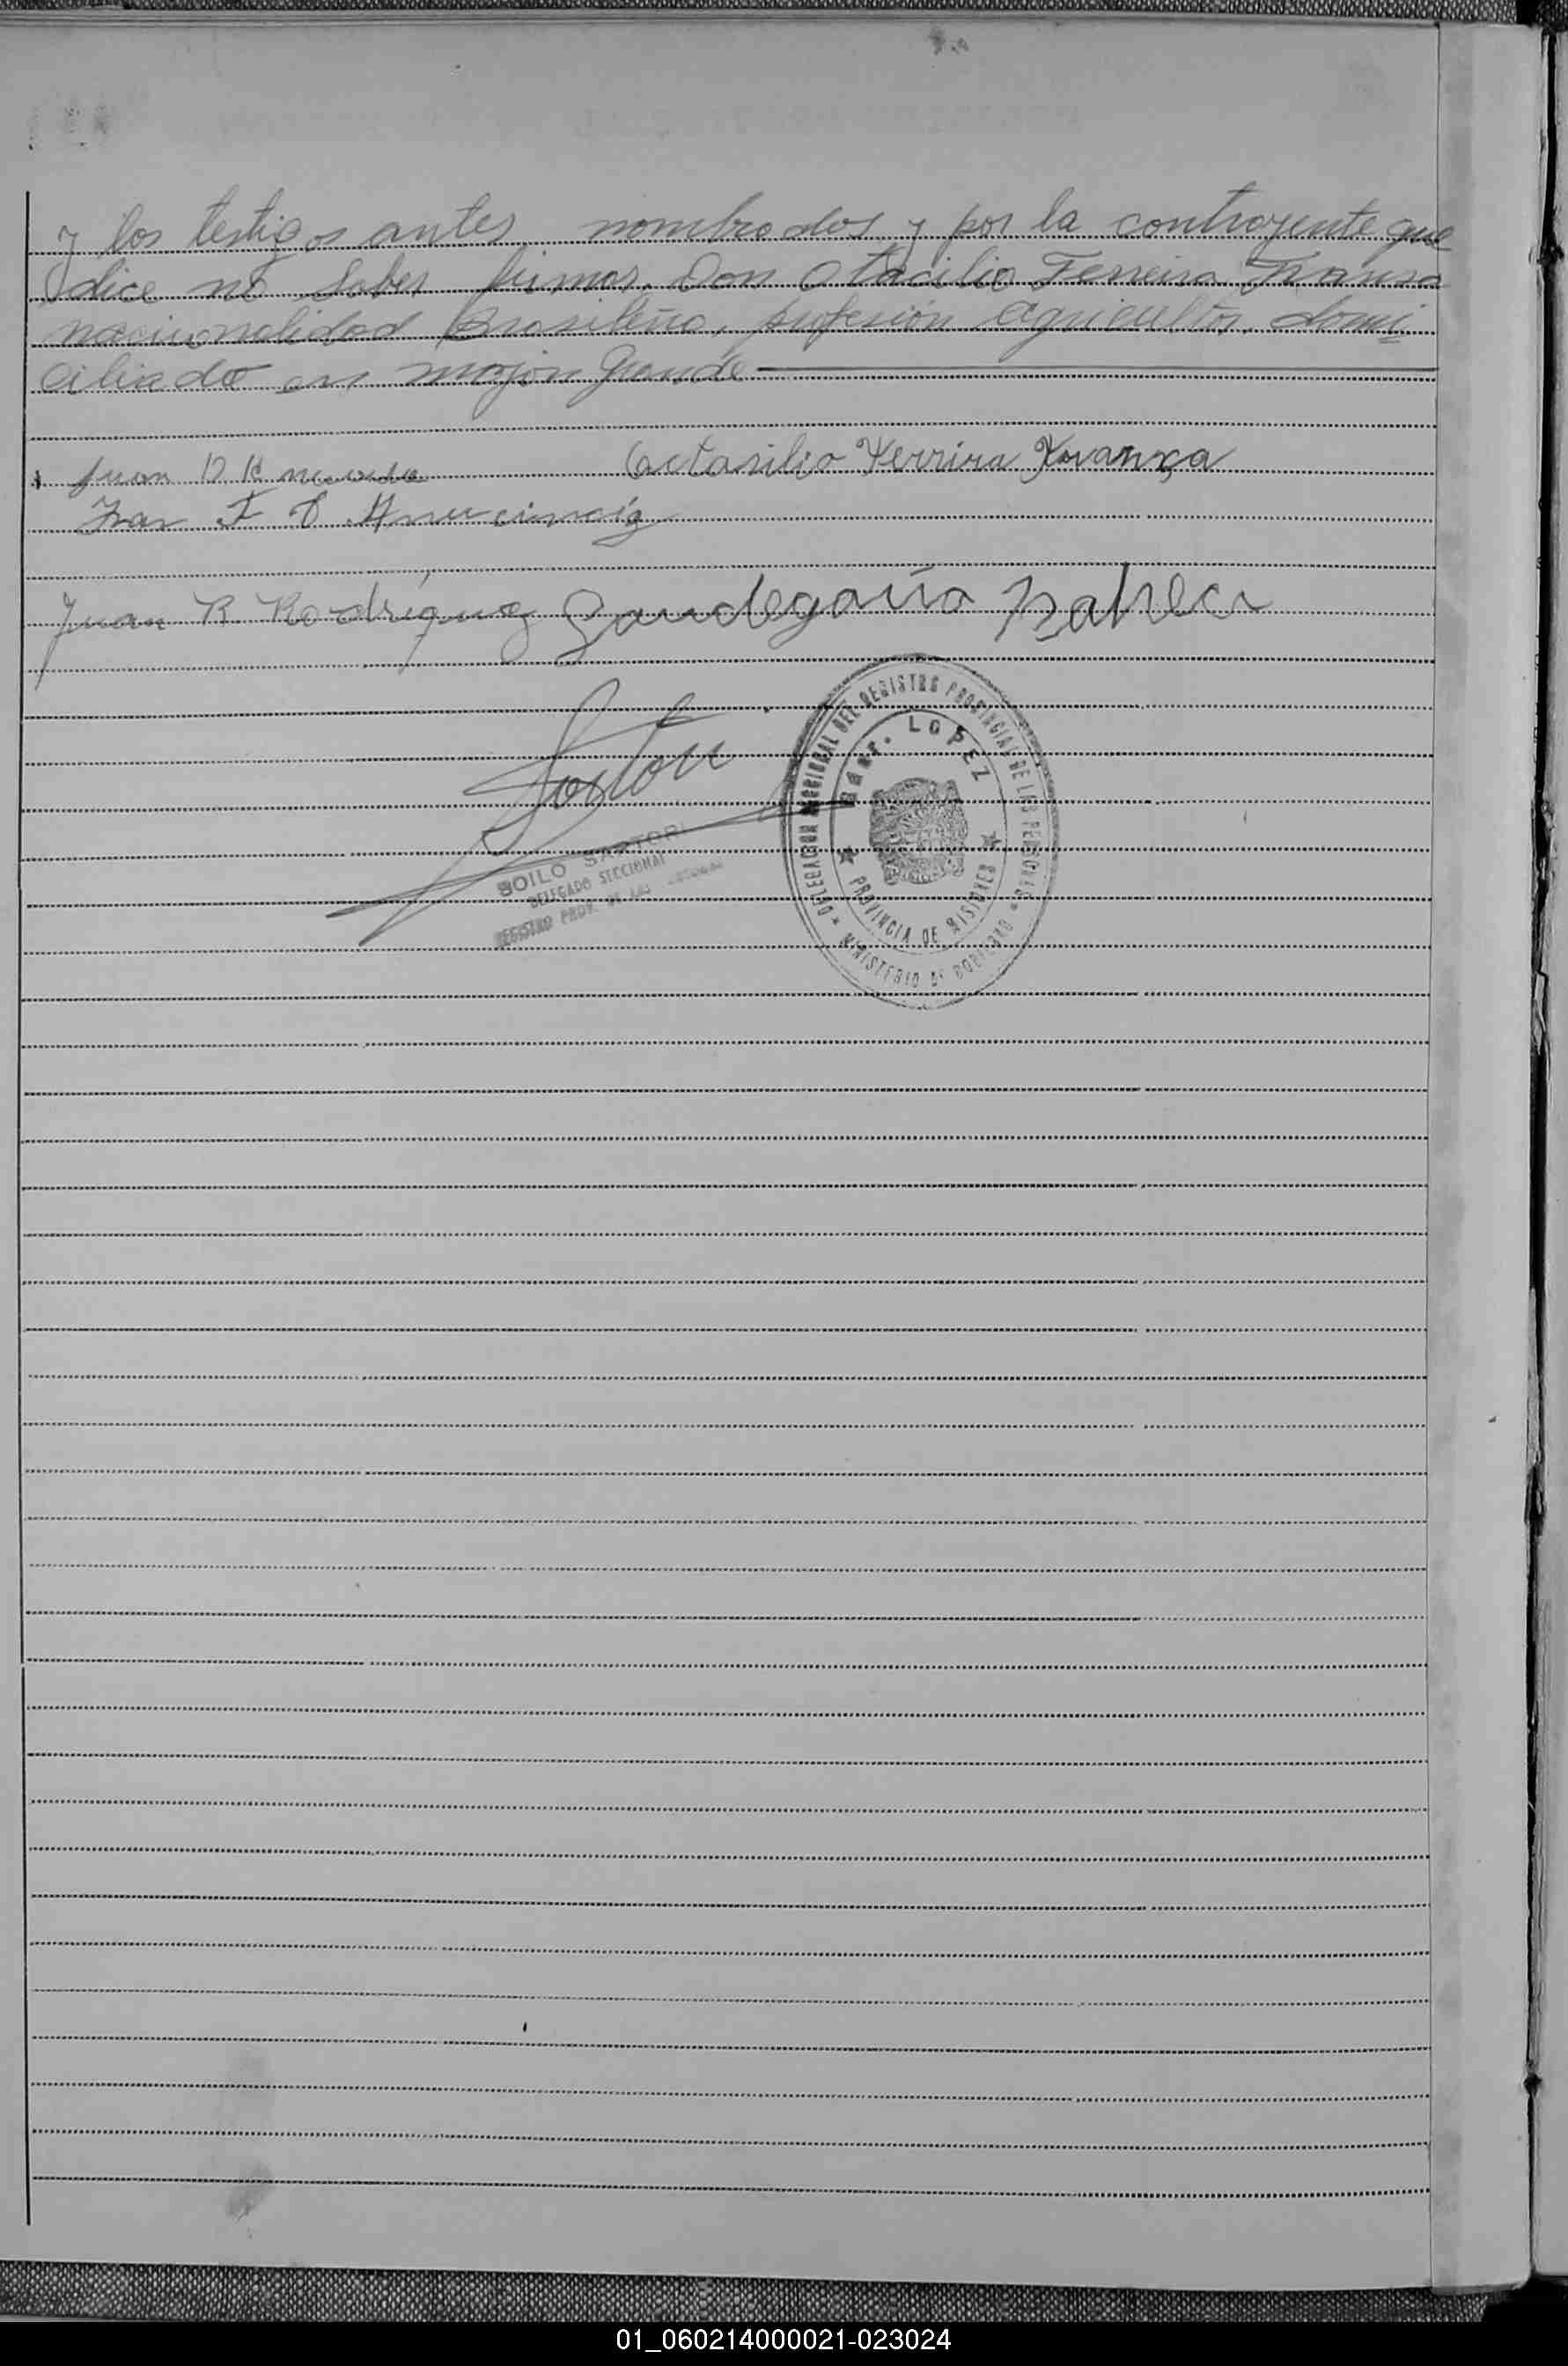 y los testigos antes nombrados y por la contrayente que
dice no saber firmar, Don Otacilio Ferreira Fransa
nacionalidad Brasileña, profesión agricultor, domi
ciliado en mojon Grande
Juan
Octasilio Ferrira Kvança
Juan R. Rodríguez
SOILO SARTORI
DELEGADO SECCIONAL
REGISTRO PROV. DE LAS
DELEGACION SECCIONAL DEL REGISTRO PROVINCIAL DE LAS PERSONAS
LOPEZ
PROVINCIA DE MISIONES
MINISTERIO DE GOBIERNO
01_060214000021-023024